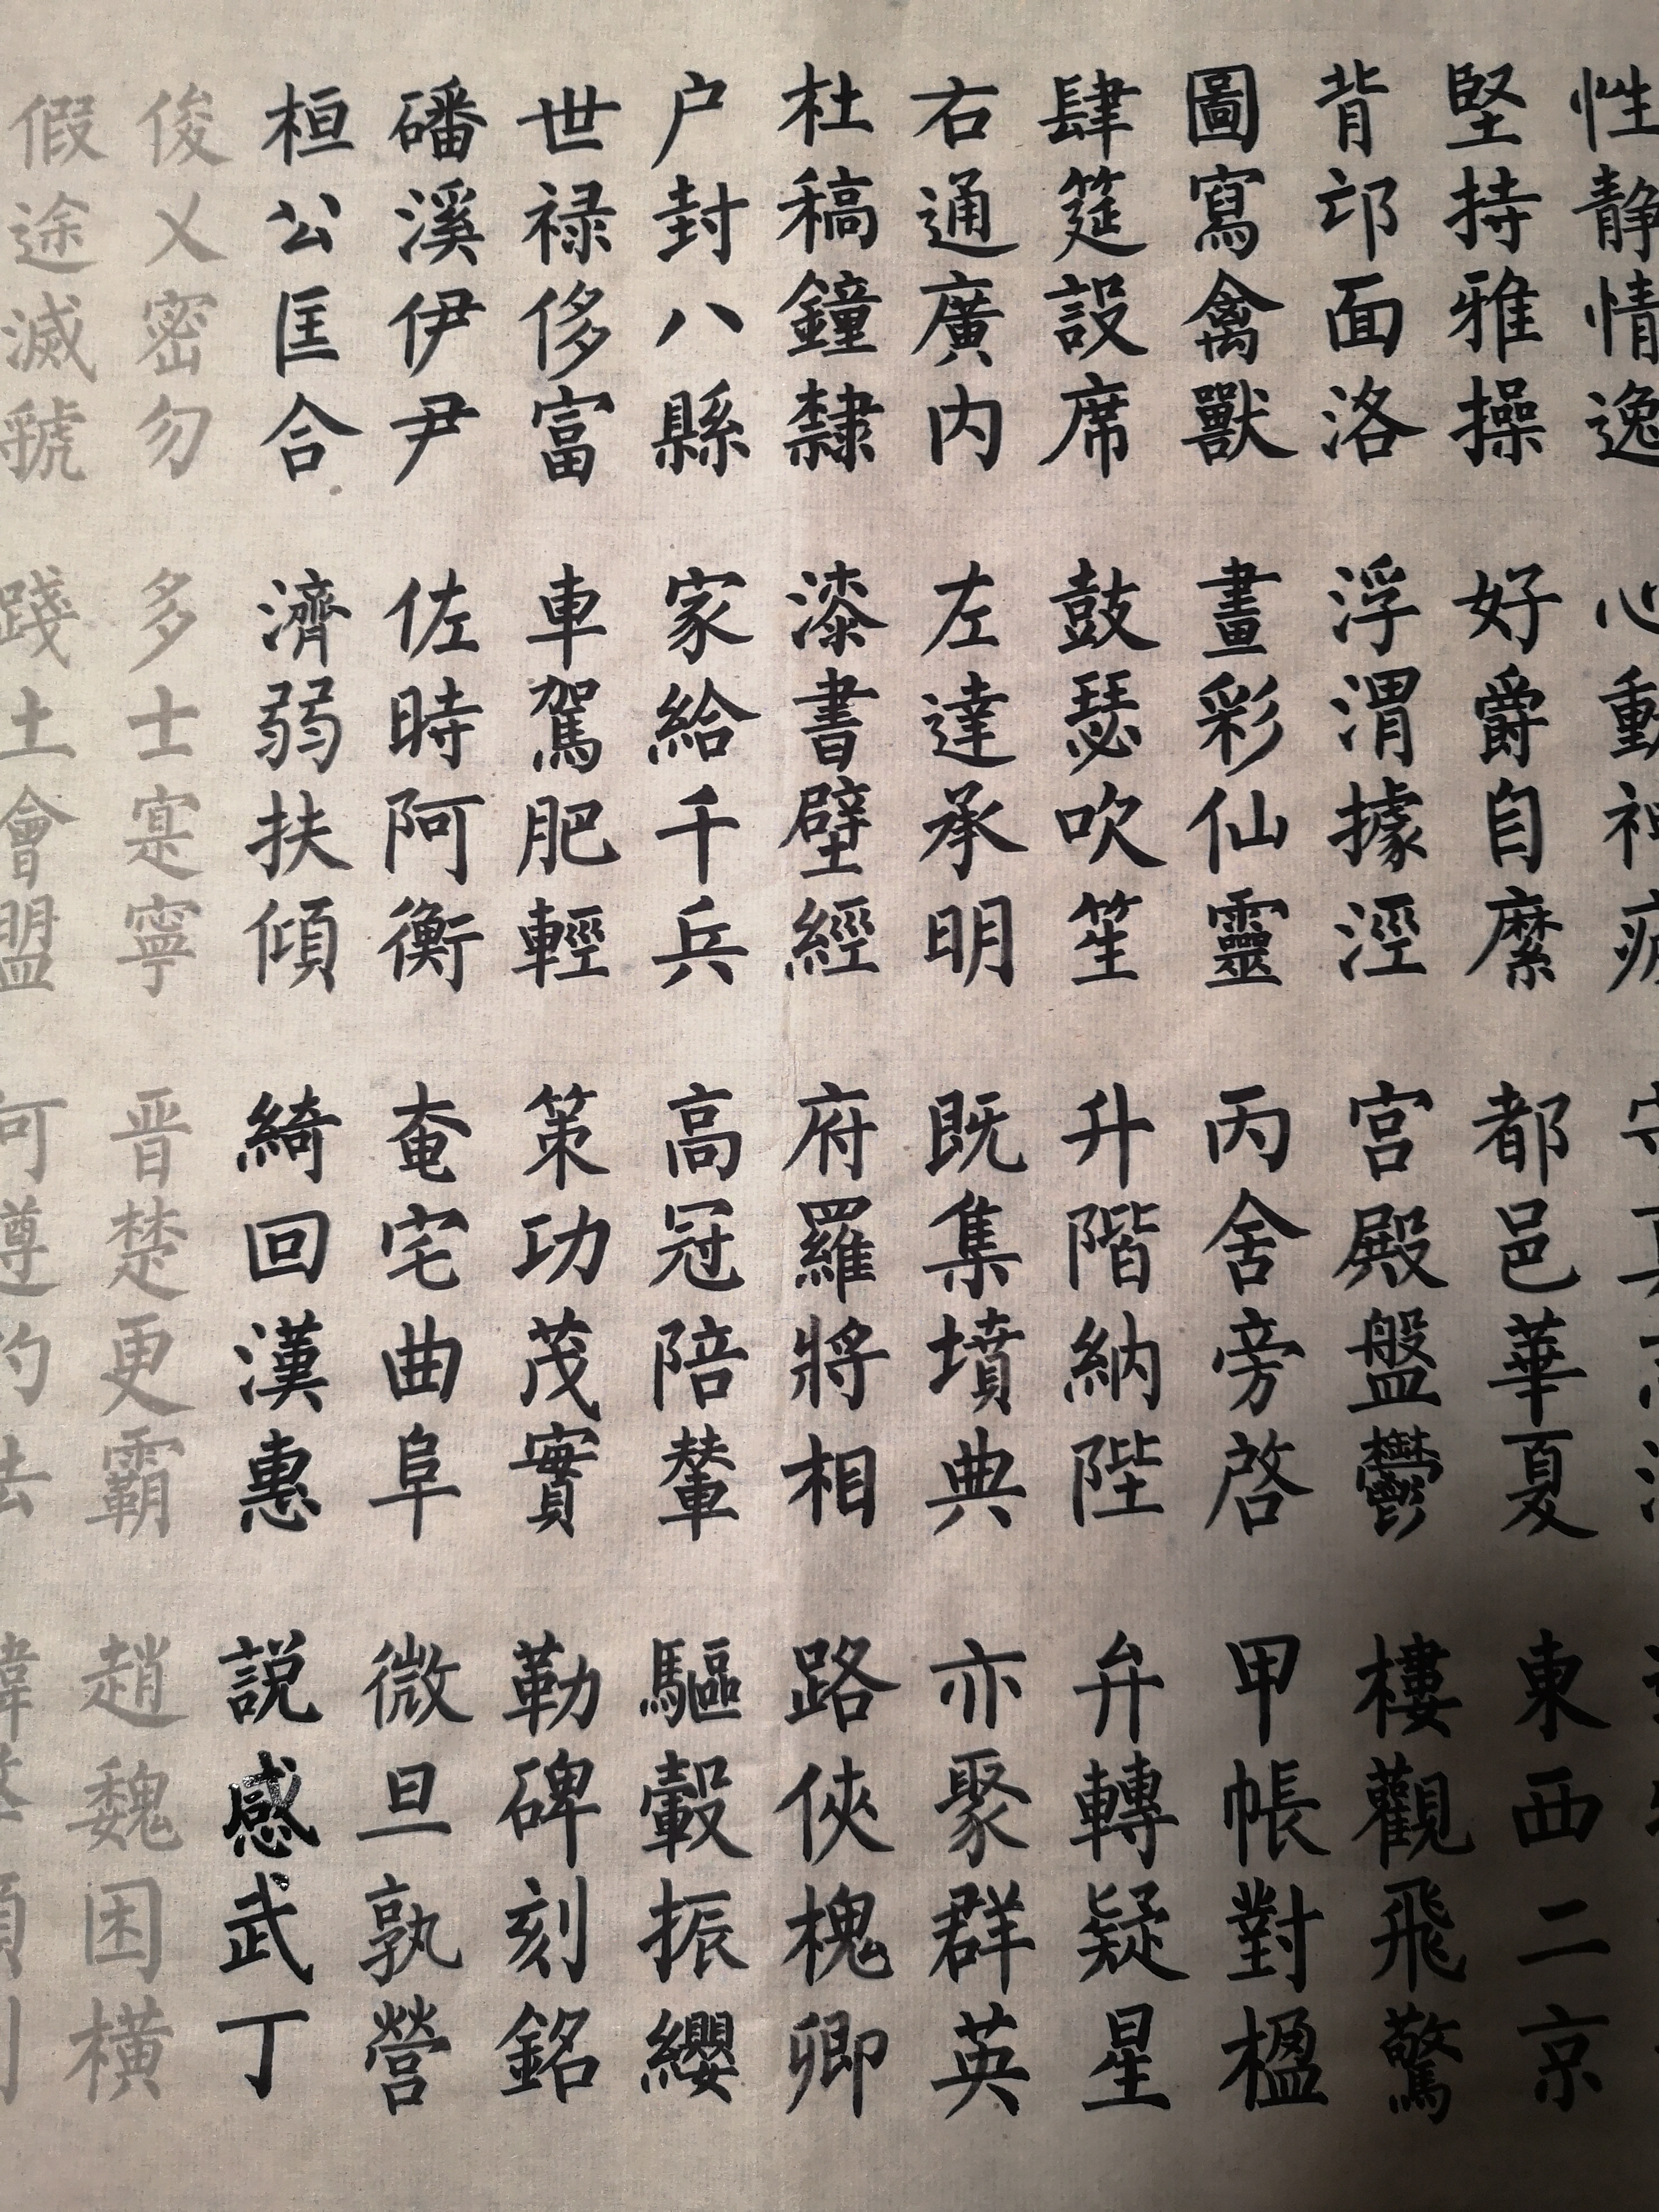 性静情逸 心動神疲 守真志滿
堅持雅操 好爵自縻 都邑華夏 東西二京
背邙面洛 浮渭據涇 宫殿盤鬱 樓觀飛驚
圖寫禽獸 畫彩仙靈 丙舍旁啓 甲帳對楹
肆筵設席 鼓瑟吹笙 升階納陛 弁轉疑星
右通廣内 左達承明 既集墳典 亦聚群英
杜稿鐘隸 漆書壁經 府羅將相 路俠槐卿
户封八縣 家給千兵 高冠陪輦 驅轂振纓
世禄侈富 車駕肥輕 策功茂實 勒碑刻銘
磻溪伊尹 佐時阿衡 奄宅曲阜 微旦孰營
桓公匡合 濟弱扶傾 綺回漢惠 説感武丁
俊乂密勿 多士寔寧 晋楚更霸 趙魏困横
假途滅虢 踐土會盟 何遵約法